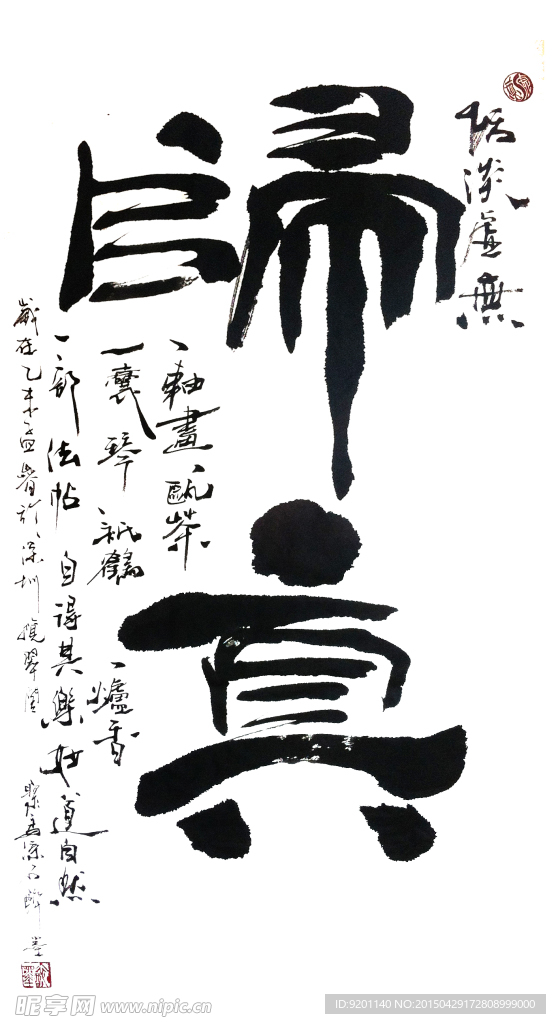 恬淡虛無
歸真
一軸畫一甌茶
一囊琴一祇鶴一爐香
一部法帖自得其樂妙道自然
歲在乙未孟春於深圳擁翠園
墨
昵享网 www.nipic.cn
ID:9201140 NO:20150429172808999000